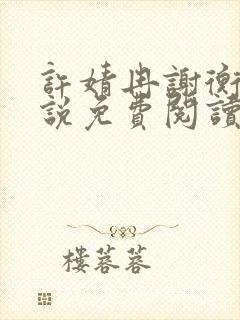 許婧冉謝衡
說免費閱讀
樓蓉蓉